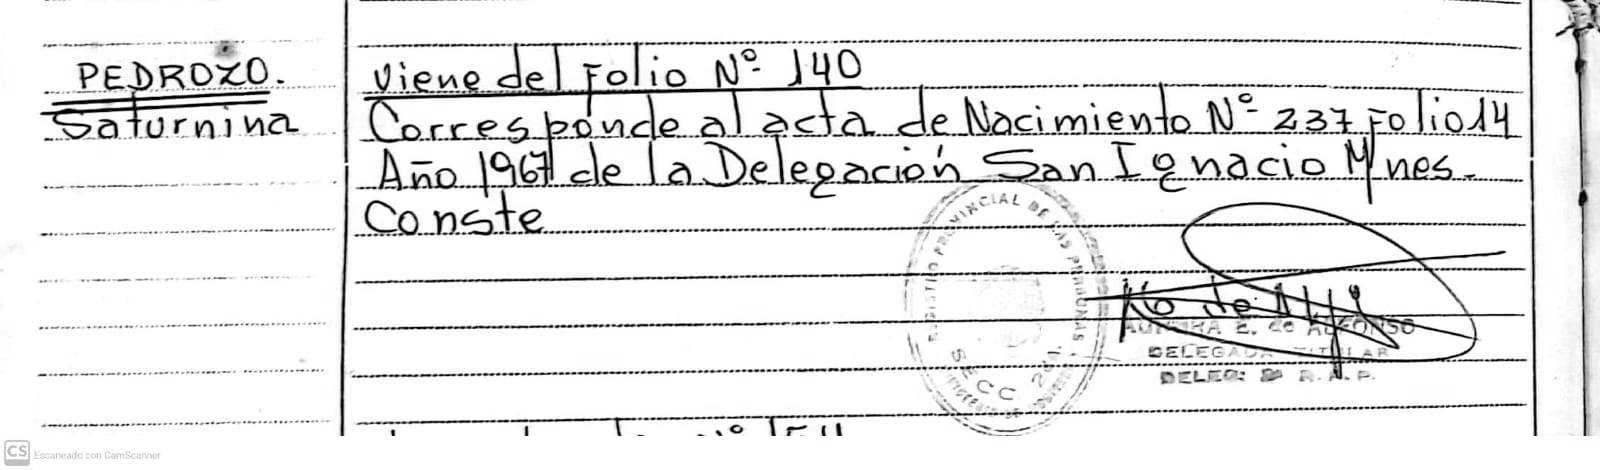 PEDROZO.
Saturnina
Viene del Folio Nº 140
Corresponde al acta de Nacimiento Nº 237 Folio 14
Año 1967 de la Delegación San Ignacio Mnes.
Conste
REGISTRO PROVINCIAL DE LAS PERSONAS
SECC
E. de ALFONSO
DELEGADA TITULAR
DELEG: R.A.P.
CS Escaneado con CamScanner